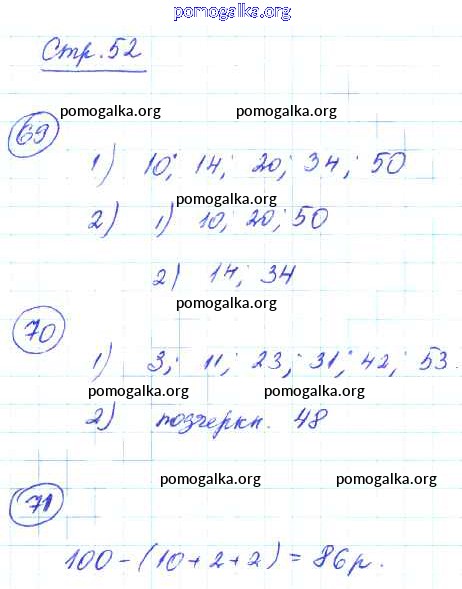 pomogalka.org
Стр. 52
pomogalka.org pomogalka.org
69
1) 10; 14; 20; 34; 50
pomogalka.org
2) 1) 10; 20; 50
2) 14; 34
pomogalka.org
70
1) 3; 11; 23; 31; 42; 53.
pomogalka.org pomogalka.org
2) подчеркн. 48
71
pomogalka.org pomogalka.org
100-(10+2+2)=86р.